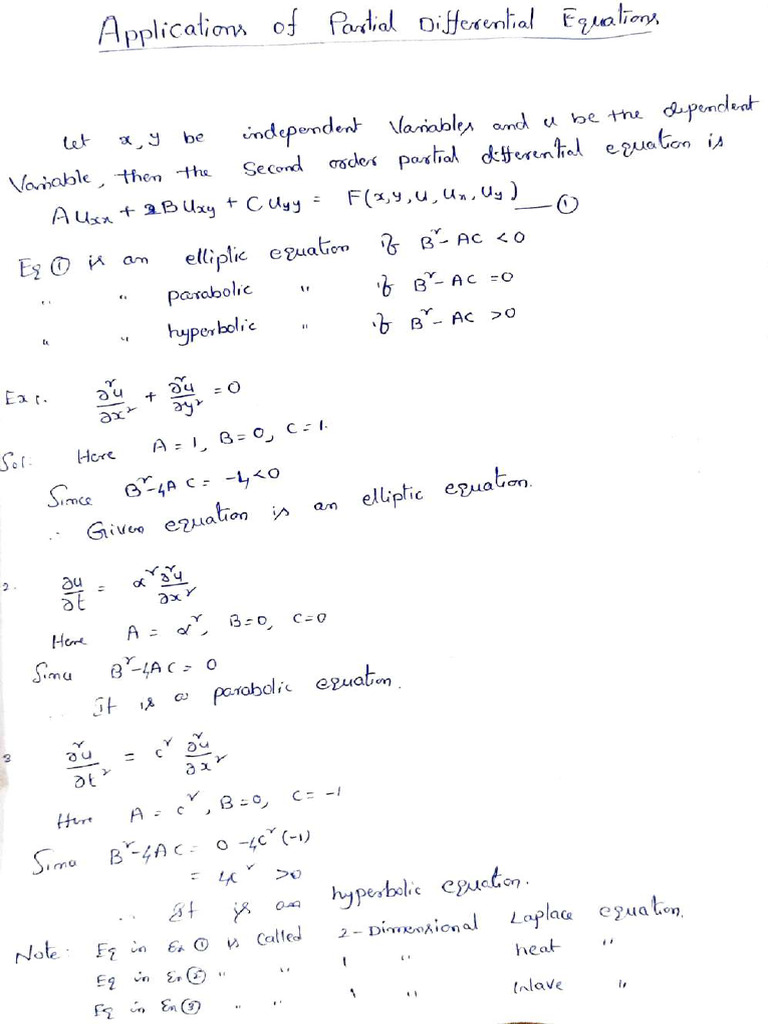 Applications of Partial Differential Equations
Let x, y be independent Variables and u be the dependent
Variable, then the Second order partial differential equation is
A Uxx + 2B Uxy + C Uyy = F(x, y, u, Ux, Uy) — ①
Eq ① is an elliptic equation if B² - AC < 0
" " parabolic " if B² - AC = 0
" " hyperbolic " if B² - AC > 0
Ex 1. ∂²u/∂x² + ∂²u/∂y² = 0
Sol: Here A = 1, B = 0, C = 1.
Since B² - 4AC = -4 < 0
∴ Given equation is an elliptic equation.
2. ∂u/∂t = α² ∂²u/∂x²
Here A = α², B = 0, C = 0
Since B² - 4AC = 0
It is a parabolic equation.
3 ∂²u/∂t² = c² ∂²u/∂x²
Here A = c², B = 0, C = -1
Since B² - 4AC = 0 - 4c²(-1)
= 4c² > 0
∴ It is an hyperbolic equation.
Note: Eq in Ex ① is called 2-Dimensional Laplace equation.
Eq in Ex ② " " 1 " heat "
Eq in Ex ③ " " 1 " Wave "